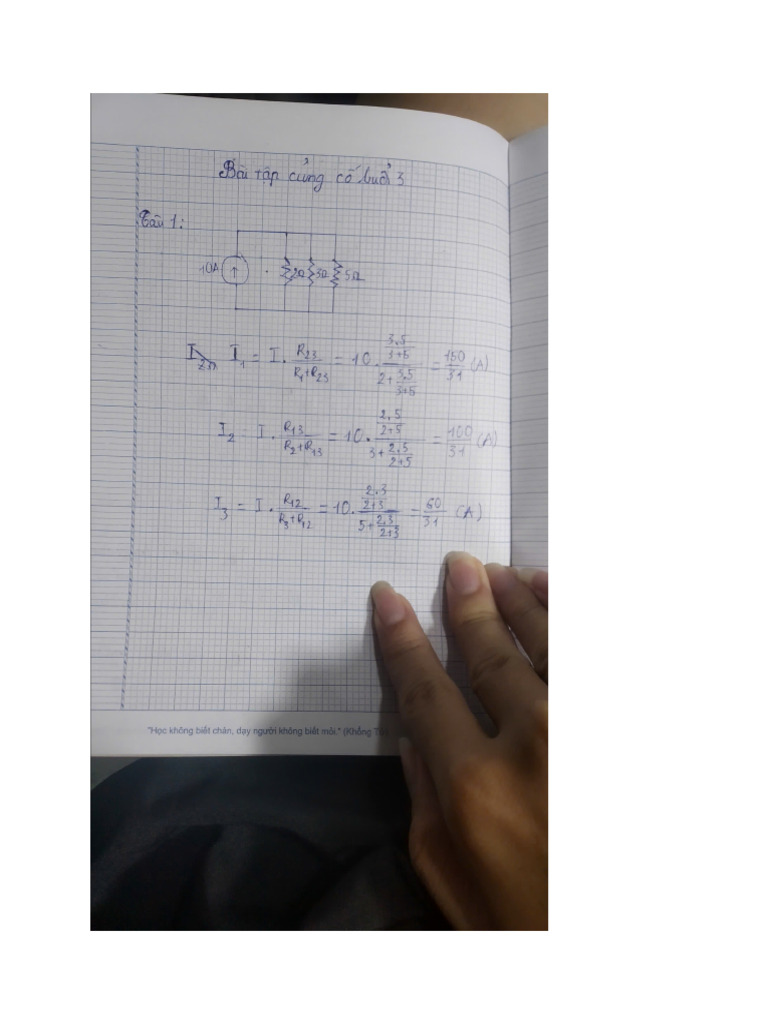 Bài tập củng cố buổi 3
Câu 1:
10A 2Ω 3Ω 5Ω
I₁ = I . R₂₃/(R₁+R₂₃) = 10 . (3.5/(3+5))/(2+3.5/(3+5)) = 150/31 (A)
I₂ = I . R₁₃/(R₂+R₁₃) = 10 . (2.5/(2+5))/(3+2.5/(2+5)) = 100/31 (A)
I₃ = I . R₁₂/(R₃+R₁₂) = 10 . (2.3/(2+3))/(5+2.3/(2+3)) = 60/31 (A)
"Học không biết chán, dạy người không biết mỏi." (Khổng